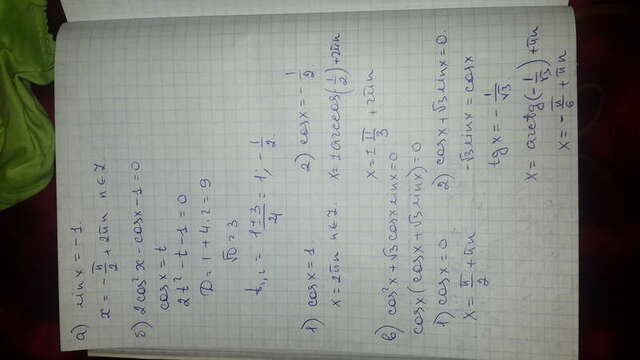 а) sin x = -1.
x = -π/2 + 2πn n∈Z
б) 2cos²x - cosx - 1 = 0
cosx = t
2t² - t - 1 = 0
D = 1 + 4·2 = 9
√D = 3
t₁,₂ = (1±3)/4 = 1, -1/2
1) cosx = 1
x = 2πn n∈Z.
2) cosx = -1/2.
x = ±arccos(1/2) + 2πn
x = ±π/3 + 2πn
в) cos²x + √3cosx sinx = 0
cosx(cosx + √3sinx) = 0
1) cosx = 0
x = π/2 + πn
2) cosx + √3sinx = 0.
-√3sinx = cosx
tgx = -1/√3
x = arctg(-1/√3) + πn
x = -π/6 + πn